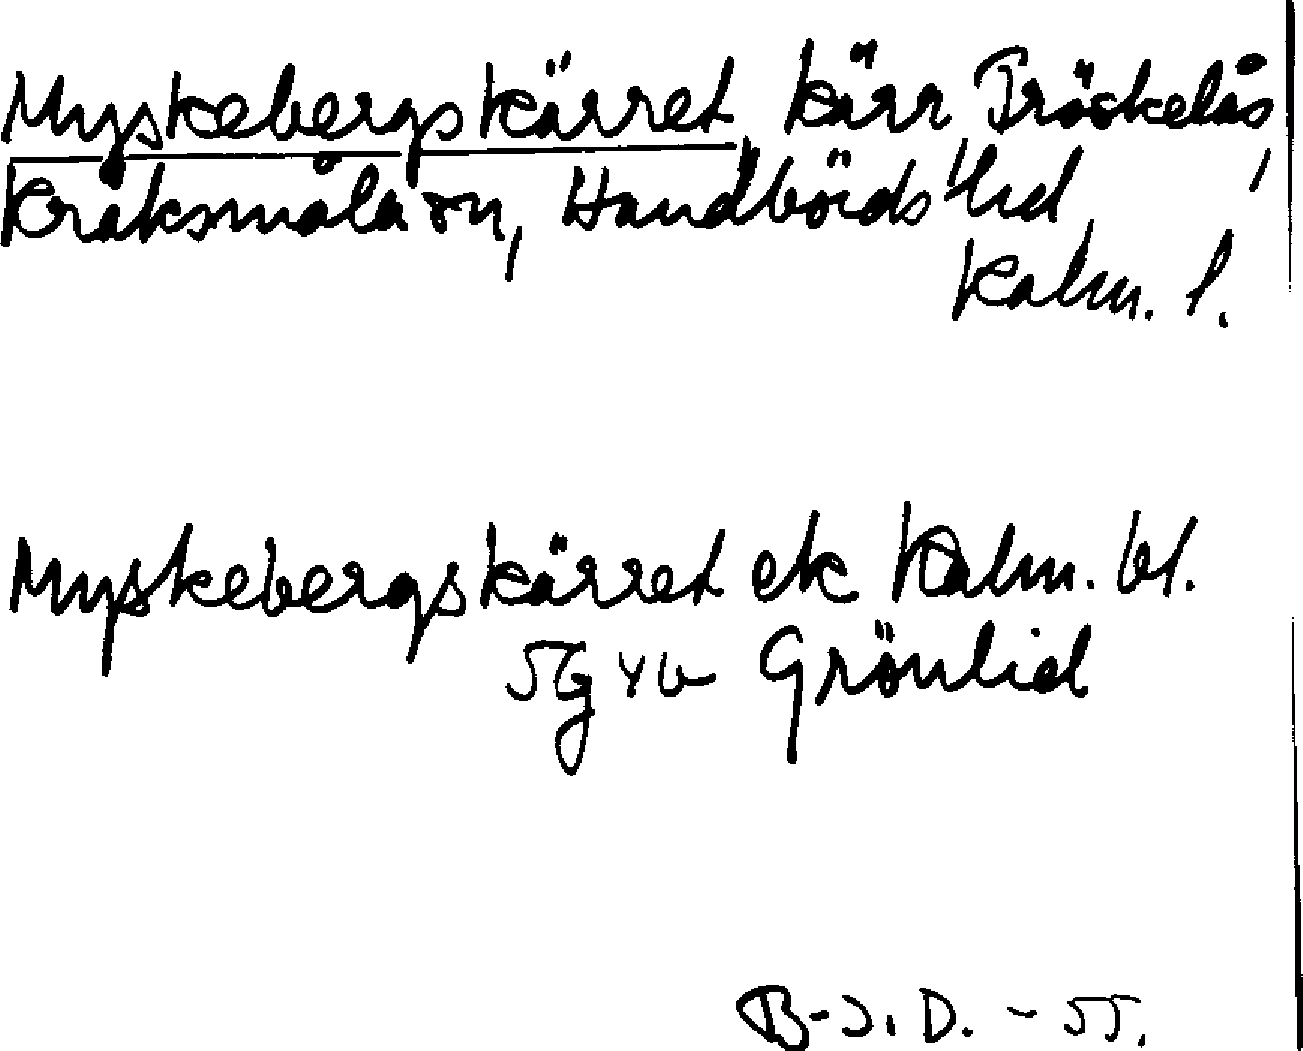 Myskebergskärret, kärr, Tröskelås,
Kråksmåla sn, Handbörds hd,
Kalm. l.
Myskebergskärret ek Kalm. bl.
5g vb Grönlid
B-J.D. - 55.